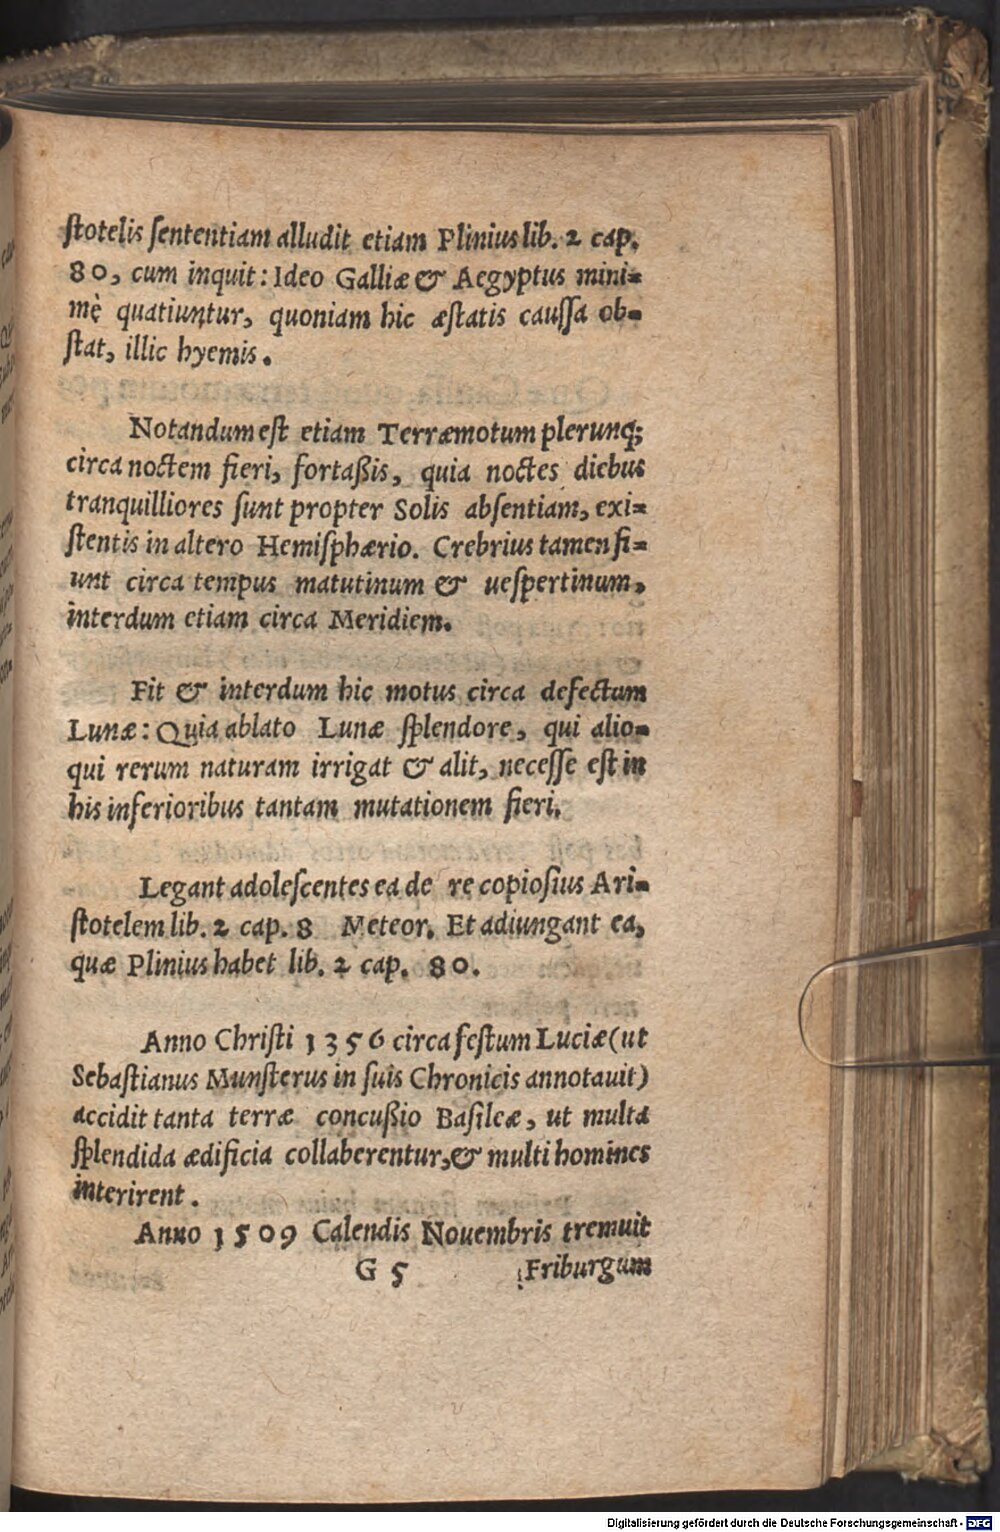 ſtotelis ſententiam alludit etiam Plinius lib. 2 cap.
80, cum inquit: Ideo Galliæ & Aegyptus mini=
mè quatiuntur, quoniam hic æſtatis cauſſa ob=
ſtat, illic hyemis.
Notandum est etiam Terræmotum plerunq;
circa noctem fieri, fortaßis, quia noctes diebus
tranquilliores ſunt propter Solis abſentiam, exi=
ſtentis in altero Hemiſphærio. Crebrius tamen fi=
unt circa tempus matutinum & ueſpertinum,
interdum etiam circa Meridiem.
Fit & interdum hic motus circa defectum
Lunæ: Quia ablato Lunæ ſplendore, qui alio=
qui rerum naturam irrigat & alit, neceſſe eſt in
his inferioribus tantam mutationem fieri.
Legant adoleſcentes ea de re copioſius Ari=
ſtotelem lib. 2 cap. 8 Meteor. Et adiungant ea,
quæ Plinius habet lib. 2 cap. 80.
Anno Chriſti 1356 circa feſtum Luciæ (ut
Sebaſtianus Munſterus in ſuis Chronicis annotauit)
accidit tanta terræ concußio Baſileæ, ut multa
ſplendida ædificia collaberentur, & multi homines
interirent.
Anno 1509 Calendis Nouembris tremuit
G 5 Friburgum
Digitalisierung gefördert durch die Deutsche Forschungsgemeinschaft - DFG